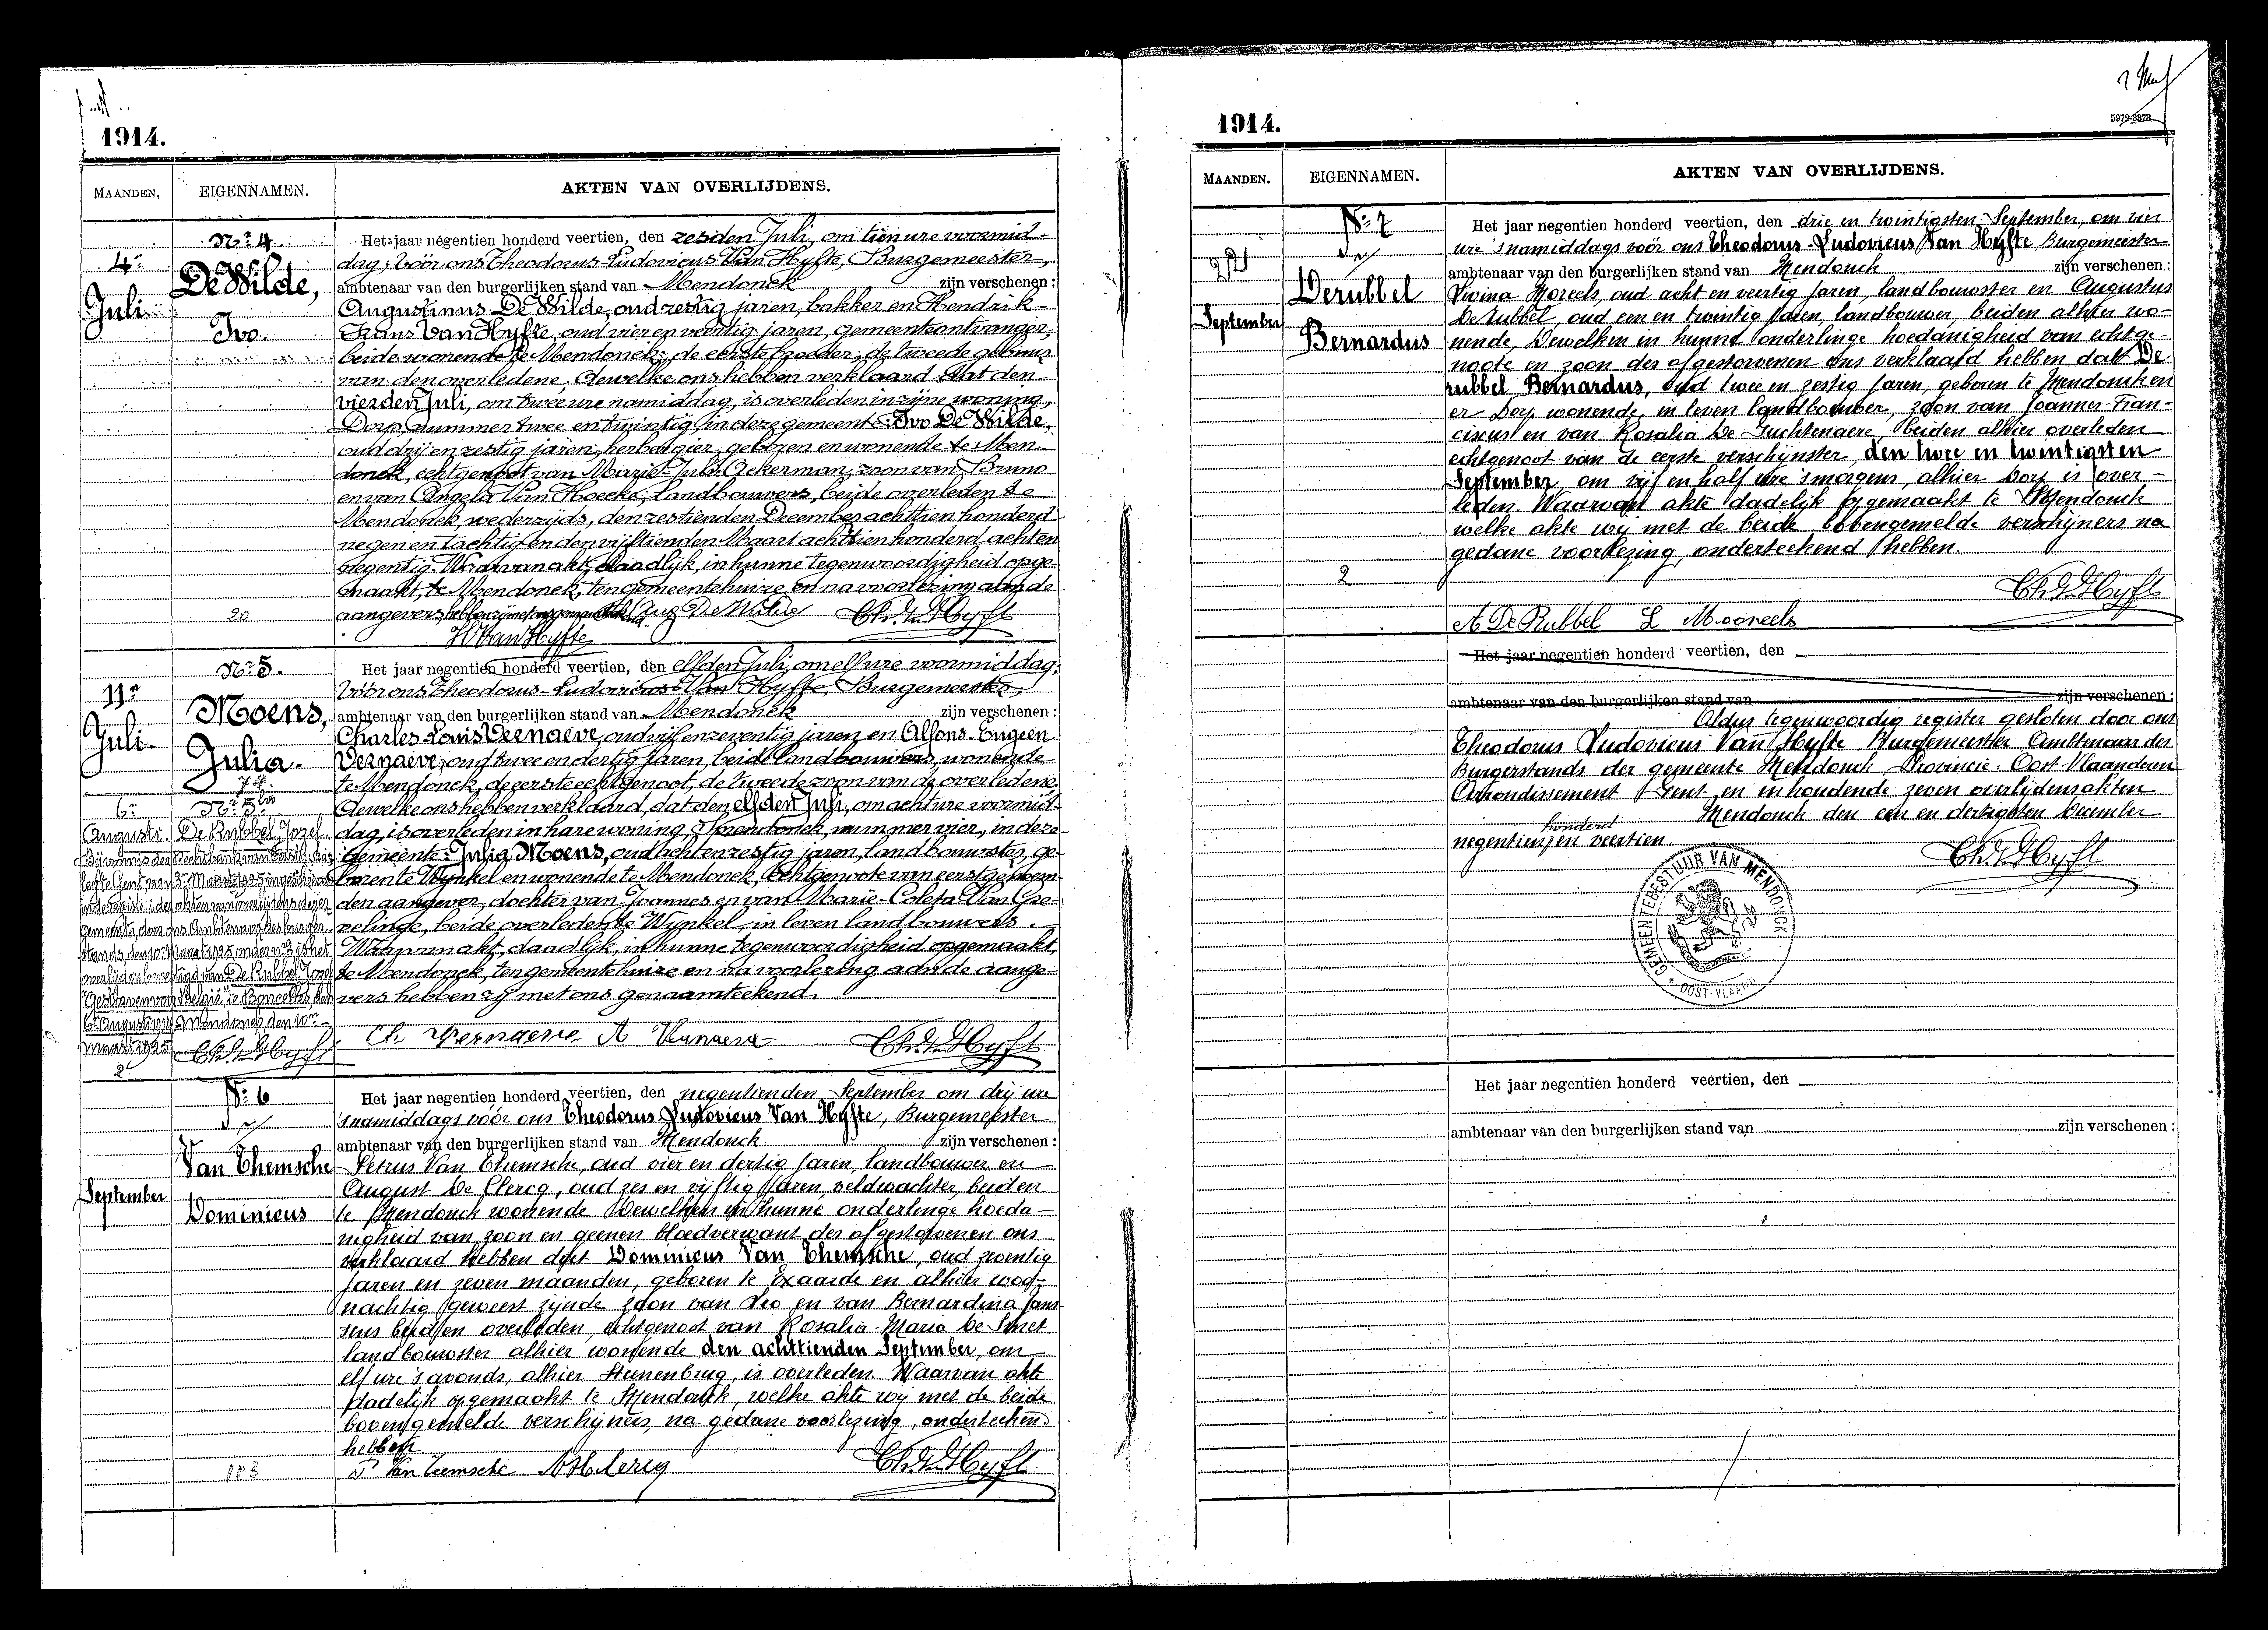 1914.
MAANDEN.
EIGENNAMEN.
AKTEN VAN OVERLIJDENS.
Nr 4.
4n
Juli
De Wilde,
Ivo.
Het jaar negentien honderd veertien, den zesden Juli, om tien ure voormid-
dag; vóór ons Theodorus-Ludovicus Van Hyfte, Burgemeester,
ambtenaar van den burgerlijken stand van Mendonck zijn verschenen:
Augustinus De Wilde, oud zestig jaren, bakker en Hendrik-
Frans Van Hyfte, oud vier en veertig jaren, gemeenteontvanger,
beide wonende te Mendonck; de eerste broeder, de tweede gebuur
van den overledene. dewelke ons hebben verklaard dat den
vierden Juli, om twee ure namiddag, is overleden in zijne woning,
Dorp, nummer twee en twintig, in deze gemeente: Ivo De Wilde,
oud drij en zestig jaren, herbergier, geboren en wonende te Men-
donck, echtgenoot van Marie-Julia Ackerman, zoon van Bruno
en van Angela Van Hoecke, Landbouwers, beide overleden te
Mendonck, wederzijds, den zestienden December achttien honderd
negen en tachtig en den vijftienden Maart achttien honderd acht en
negentig. Waarvan akt, daadlijk, in hunne tegenwoordigheid opge-
maakt, te Mendonck, ten gemeentehuize, en na voorlezing aan de
aangevers, hebben zij met ons Aug De Wilde
H Van Hyfte
20
Nr 5.
11n
Juli
Moens,
Julia.
Het jaar negentien honderd veertien, den elfden Juli, om elf ure voormiddag;
vóór ons Theodorus-Ludovicus Van Hyfte, Burgemeester,
ambtenaar van den burgerlijken stand van Mendonck zijn verschenen:
Charles-Louis Vernaeve, oud vijf en zeventig jaren en Alfons-Eugeen
Vernaeve, oud twee en dertig jaren, beide landbouwers, wonende
te Mendonck, de eerste echtgenoot, de tweede zoon van de overledene.
dewelke ons hebben verklaard, dat den elfden Juli, om acht ure voormid-
dag, is overleden in hare woning, Mendonck, nummer vier, in deze
gemeente: Julia Moens, oud acht en zestig jaren, landbouwster, ge-
boren te Wynkel en wonende te Mendonck, Echtgenoote van eerstgenoem-
den aangever, dochter van Joannes en van Marie-Coleta Van Gre-
velinge, beide overleden te Wynkel, in leven landbouwers.
Waarvan akt, daadlijk, in hunne tegenwoordigheid opgemaakt,
te Mendonck, ten gemeentehuize en na voorlezing aan de aange-
vers hebben zij met ons genaamteekend.
Ch Vernaeve A Vernaeve
6n
Augusti.
Nr 5bis
De Rubbel Jozef.
Bij vonnis der Rechtbank van
gemeente, door ons Ambtenaar des burger-
stands, den 10n Maart 1925 onder nr 3 is het
overlijden bevestigd van De Rubbel Jozef
"Gestorven voor België" te Boncelles, den
6n Augusti 1914 Mendonck, den 10n
Maart 1925
2
Nr 6
Van Themsche
September
Dominicus
Het jaar negentien honderd veertien, den negentienden September om drij ure
's namiddags vóór ons Theodorus Ludovicus Van Hyfte, Burgemeester
ambtenaar van den burgerlijken stand van Mendonck zijn verschenen:
Petrus Van Themsche, oud vier en dertig jaren, landbouwer en
August De Clercq, oud zes en vijftig jaren, veldwachter, beiden
te Mendonck wonende Dewelken in hunne onderlinge hoeda-
nigheid van zoon en geenen bloedverwant des afgestorvenen ons
verklaard hebben dat Dominicus Van Themsche, oud zeventig
jaren en zeven maanden, geboren te Exaarde en alhier woo-
nachtig geweest zijnde zoon van Leo en van Bernardina Jans-
sens beiden overleden, echtgenoot van Rosalia-Maria De Smet
landbouwster alhier wonende den achttienden September, om
elf ure 's avonds, alhier Steenenbrug, is overleden. Waarvan akte
dadelijk opgemaakt te Mendonck, welke akte wij met de beide
bovengemelde verschijners, na gedane voorlezing, onderteekend
hebben
P Van Temsche
113
1914.
5979-3373
MAANDEN.
EIGENNAMEN.
AKTEN VAN OVERLIJDENS.
Nr 7
22
September
Derubbel
Bernardus
Het jaar negentien honderd veertien, den drie en twintigsten September, om vier
ure 's namiddags vóór ons Theodorus-Ludovicus Van Hyfte, Burgemeester
ambtenaar van den burgerlijken stand van Mendonck zijn verschenen:
Vivina Moreels, oud acht en veertig jaren, landbouwster en Augustus
De Rubbel, oud een en twintig jaren, landbouwer, beiden alhier wo-
nende, Dewelken in hunne onderlinge hoedanigheid van echtge-
noote en zoon des afgestorvenen ons verklaard hebben dat De
rubbel Bernardus, oud twee en zestig jaren, geboren te Mendonck en
er Dorp wonende, in leven landbouwer, zoon van Joannes-Fran-
ciscus en van Rosalia De Luchtenaere, beiden alhier overleden
echtgenoot van de eerste verschijnster, den twee en twintigsten
September, om vijf en half ure 's morgens, alhier Dorp is over-
leden. Waarvan akte dadelijk opgemaakt te Mendonck
welke akte wij met de beide bovengemelde verschijners na
gedane voorlezing, onderteekend hebben.
2
A De Rubbel L Mooreels
Het jaar negentien honderd veertien, den
ambtenaar van den burgerlijken stand van zijn verschenen:
Aldus tegenwoordig register gesloten door ons
Theodorus Ludovicus Van Hyfte Burgemeester Ambtenaar des
Burgerstands der gemeente Mendonck Provincie: Oost-Vlaanderen
Arrondissement Gent en inhoudende zeven overlijdensakten
Mendonck den een en dertigsten December
negentien honderd en veertien
GEMEENTEBESTUUR VAN MENDONCK
OOST-VLAAND
Het jaar negentien honderd veertien, den
ambtenaar van den burgerlijken stand van zijn verschenen: